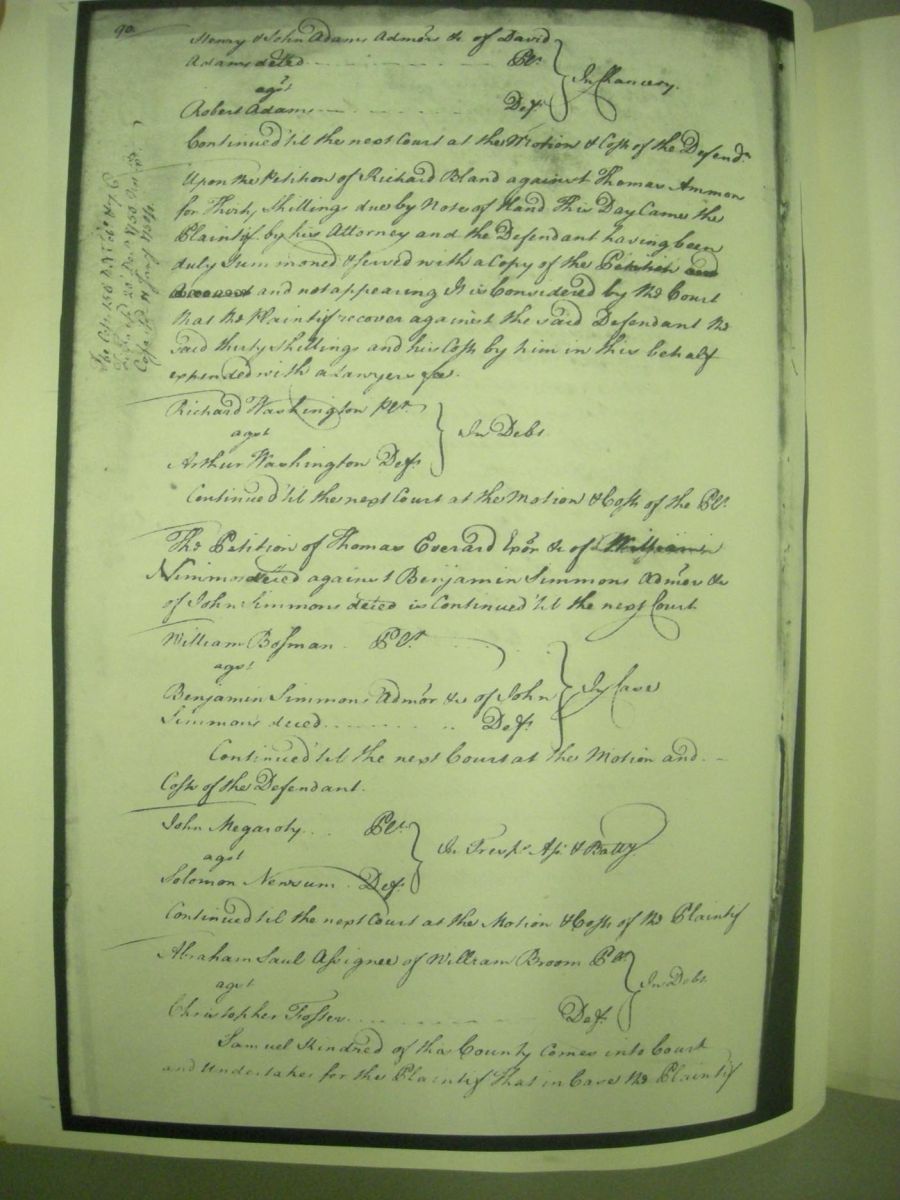 90
Henry & John Adams Admors &c of David
Adams deced - - - - - - - - Plt
agst
Robert Adams - - - - - - - Deft
In Chancery
Continued 'til the next Court at the Motion & Costs of the Defendt
Upon the Petition of Richard Bland against Thomas Ammon
for Thirty Shillings due by Note of Hand This Day Came the
Plaintif by his Attorney and the Defendant having been
duly Summoned & served with a Copy of the Petition and
Account and not appearing It is Considered by the Court
that the Plaintif recover against the said Defendant the
said thirty Shillings and his Costs by him in this behalf
expended with a Lawyers fee.
Richard Washington Plt
agst
Arthur Washington Deft
In Debt
Continued 'til the next Court at the Motion & Costs of the Plt
The Petition of Thomas Everard Exor &c of William
Nimmo deced against Benjamin Simmons Admor &c
of John Simmons deced is Continued 'til the next Court
William Bosman Plt
agst
Benjamin Simmons Admor &c of John
Simmons deced - - - - - - - Deft
In Case
Continued 'til the next Court at the Motion and
Costs of the Defendant.
John Megaroty Plt
agst
Solomon Newsum Deft
In Tresps Asst & Batty
Continued 'til the next Court at the Motion & Costs of the Plaintif
Abraham Saul Assignee of William Broom Plt
agst
Christopher Foster - - - - - - - Deft
In Debt
Samuel Kindred of the County Comes into Court
and Undertakes for the Plaintif that in Case the Plaintif